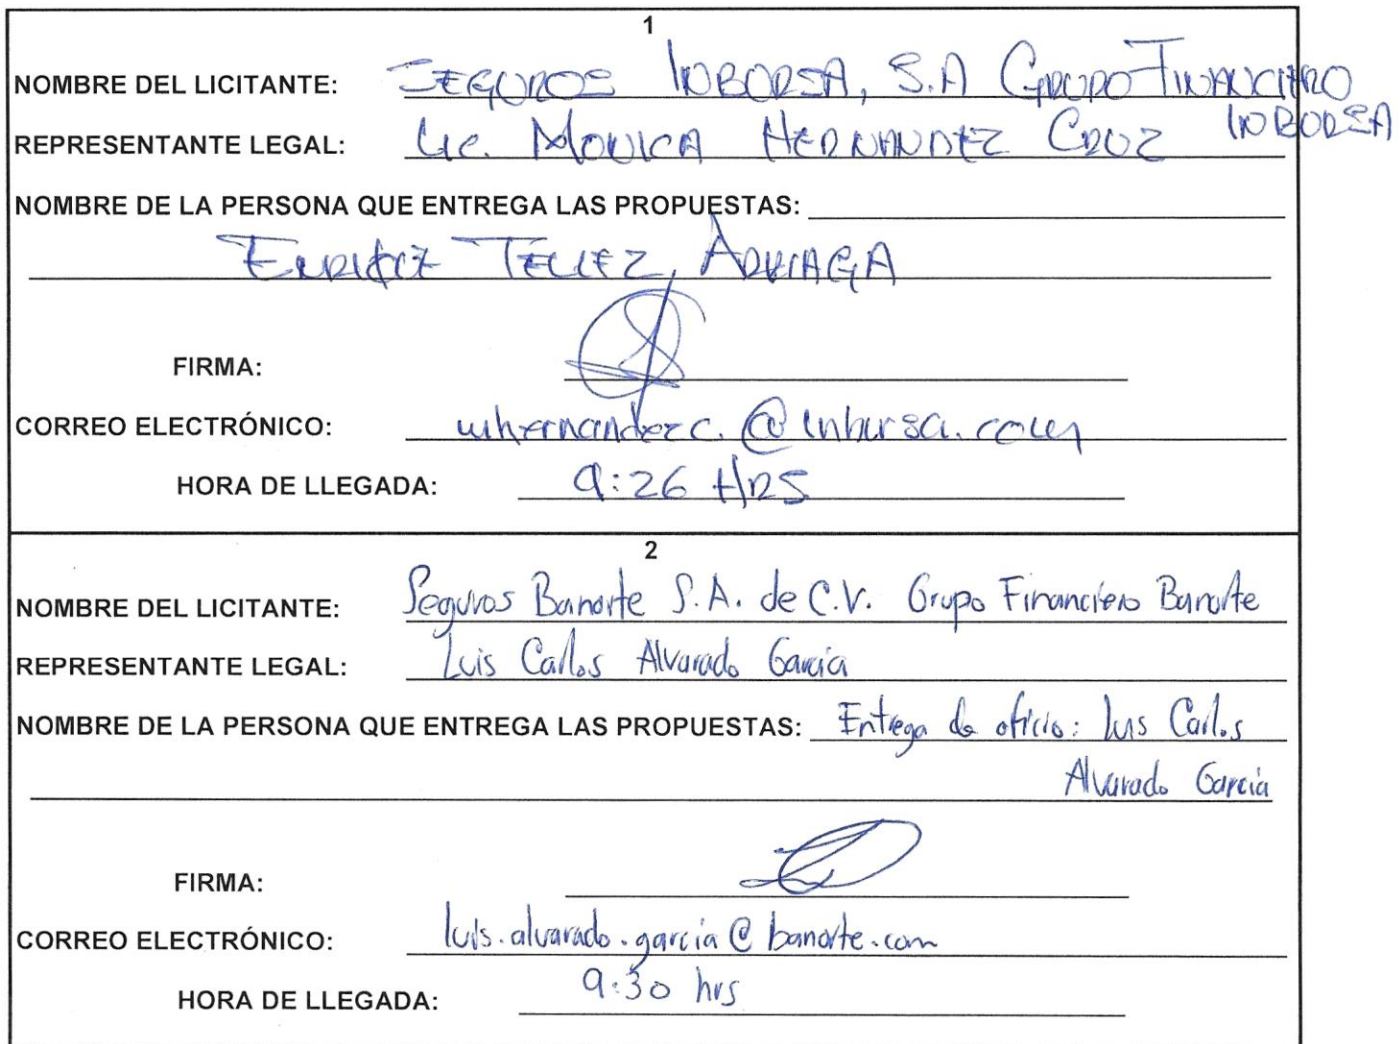 1
NOMBRE DEL LICITANTE: SEGUROS INBURSA, S.A GRUPO FINANCIERO
INBURSA
REPRESENTANTE LEGAL: Lic. MONICA HERNANDEZ CRUZ
NOMBRE DE LA PERSONA QUE ENTREGA LAS PROPUESTAS:
ENRIQUE TELLEZ ARRIAGA
FIRMA:
CORREO ELECTRÓNICO: mhernandezc.@inbursa.com
HORA DE LLEGADA: 9:26 HRS
2
NOMBRE DEL LICITANTE: Seguros Banorte S.A. de C.V. Grupo Financiero Banorte
REPRESENTANTE LEGAL: Luis Carlos Alvarado García
NOMBRE DE LA PERSONA QUE ENTREGA LAS PROPUESTAS: Entrega de oficio: Luis Carlos
Alvarado García
FIRMA:
CORREO ELECTRÓNICO: luis.alvarado.garcia@banorte.com
HORA DE LLEGADA: 9:30 hrs